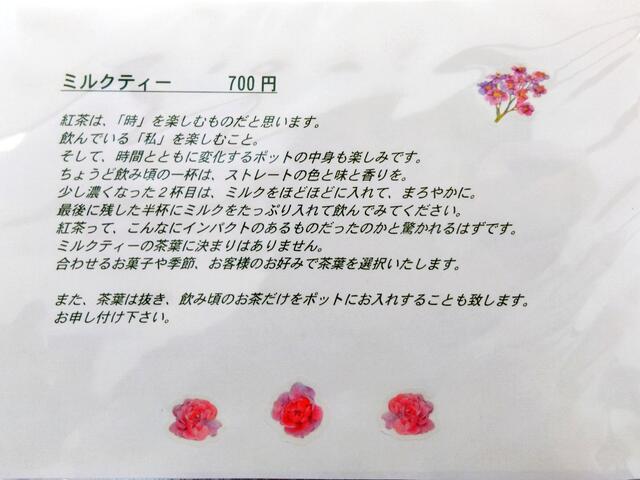 ミルクティー　　　700円
紅茶は、「時」を楽しむものだと思います。
飲んでいる「私」を楽しむこと。
そして、時間とともに変化するポットの中身も楽しみです。
ちょうど飲み頃の一杯は、ストレートの色と味と香りを。
少し濃くなった２杯目は、ミルクをほどほどに入れて、まろやかに。
最後に残した半杯にミルクをたっぷり入れて飲んでみてください。
紅茶って、こんなにインパクトのあるものだったのかと驚かれるはずです。
ミルクティーの茶葉に決まりはありません。
合わせるお菓子や季節、お客様のお好みで茶葉を選択いたします。
また、茶葉は抜き、飲み頃のお茶だけをポットにお入れすることも致します。
お申し付け下さい。